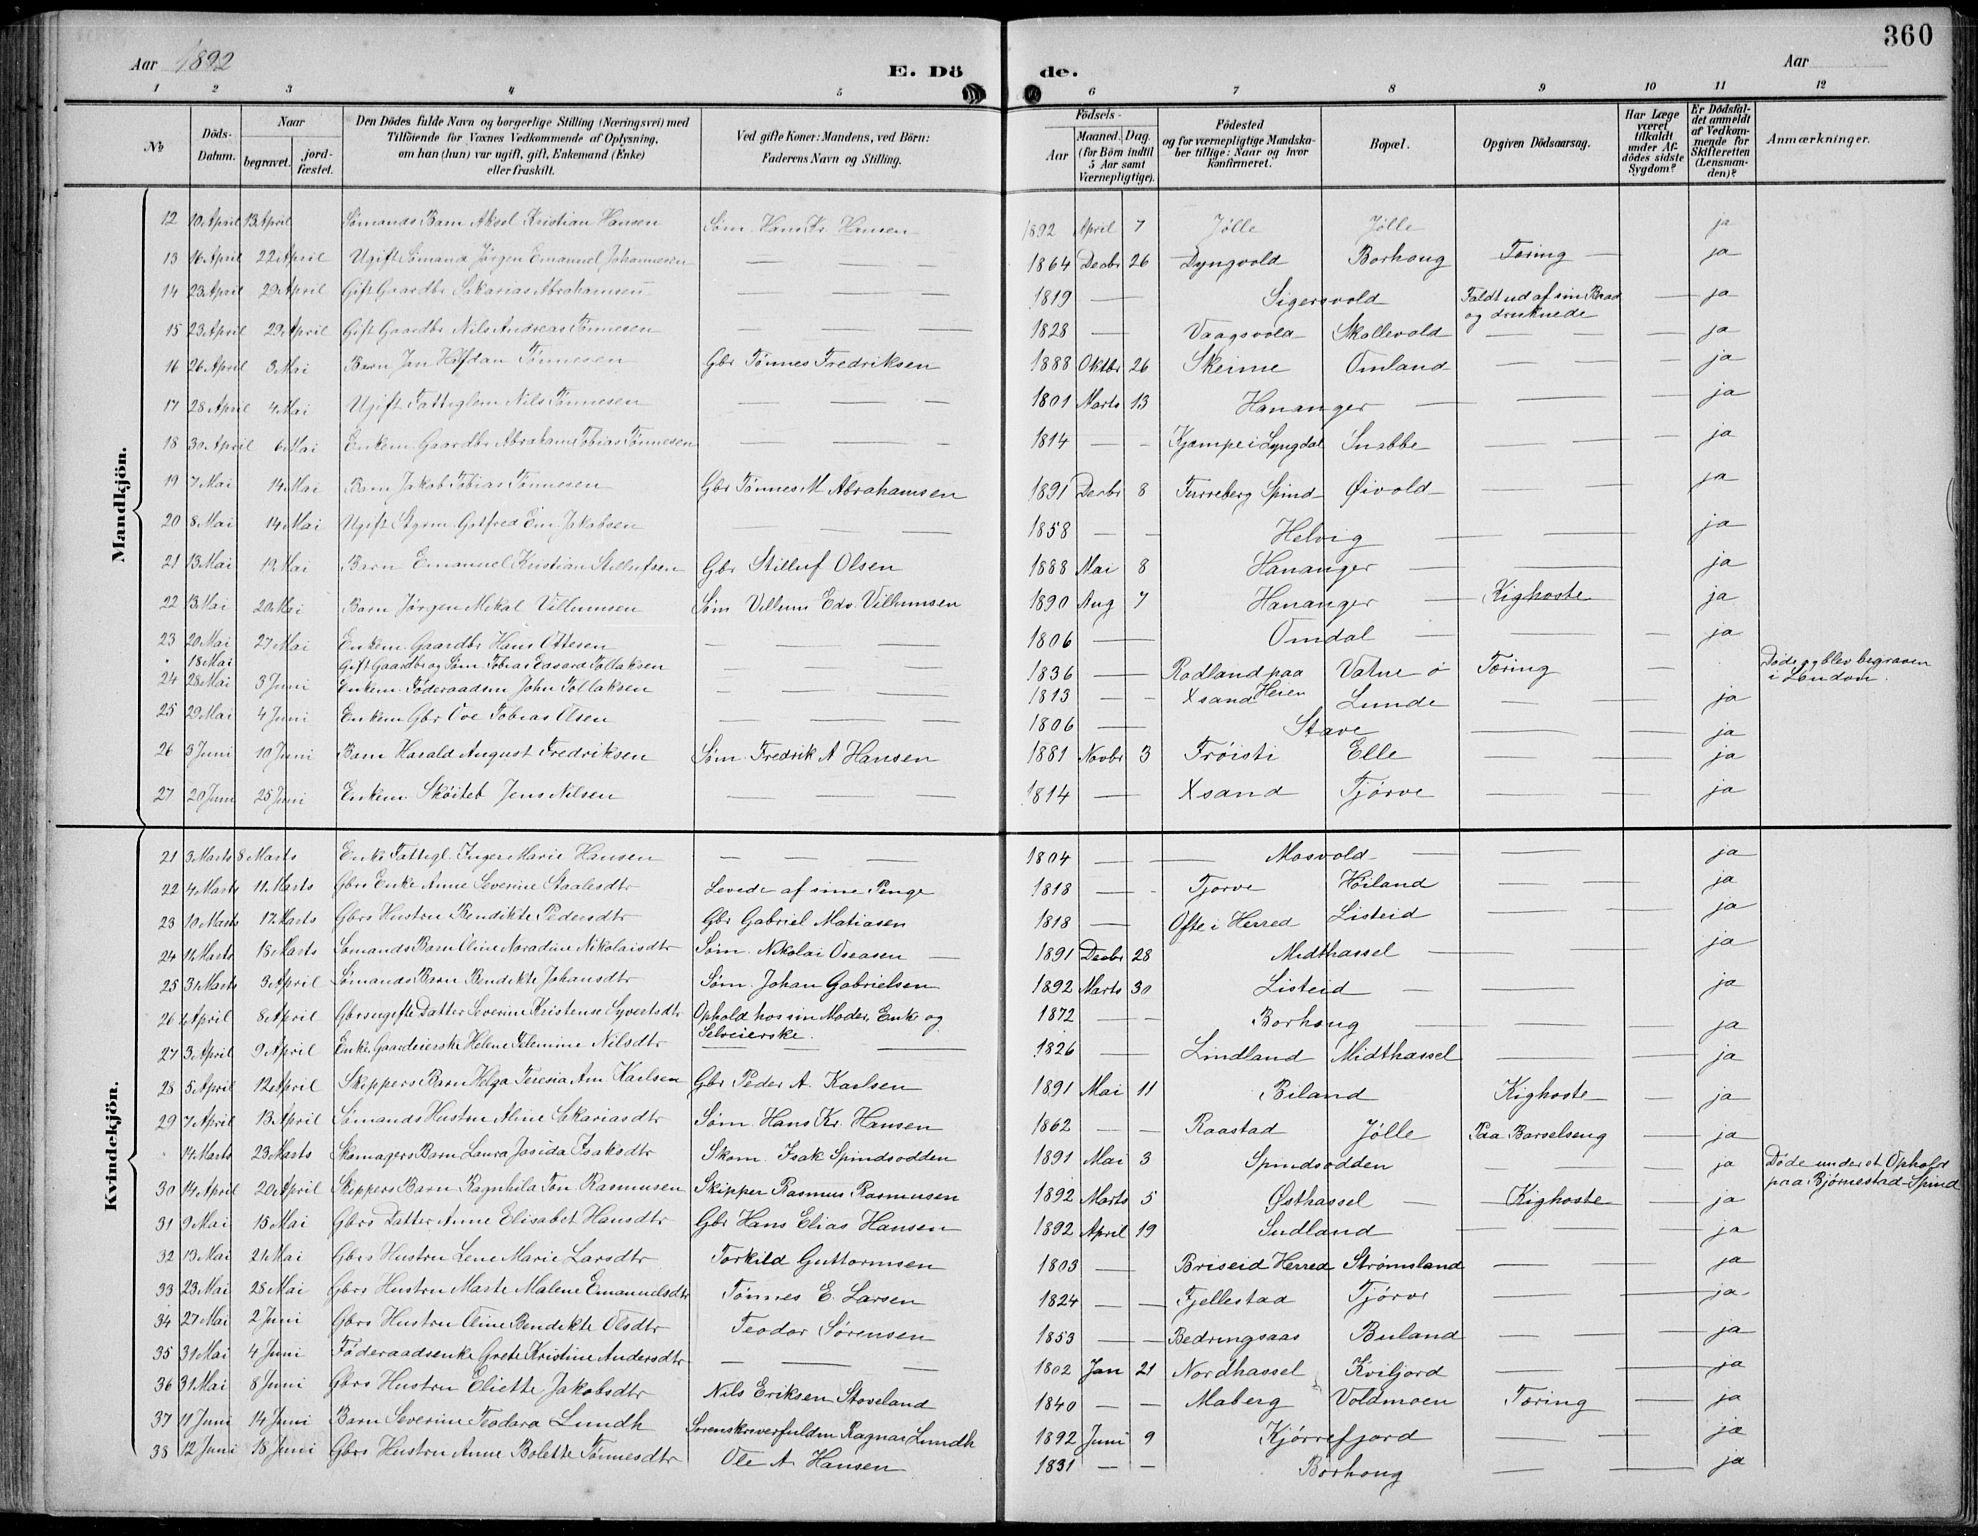 360
Aar 1892
E. Dö
de.
Aar
1 2 3 4 5 6 7 8 9 10 11 12
№
Döds-Datum.
Naar
begravet.
jordfæstet.
Den Dödes fulde Navn og borgerlige Stilling (Næringsvei) med
Tilföiende for Voxnes Vedkommende af Oplysning,
om han (hun) var ugift, gift, Enkemand (Enke)
eller fraskilt.
Ved gifte Koner: Mandens, ved Börn:
Faderens Navn og Stilling.
Födsels-
Aar
Maaned. Dag.
(for Börn indtil
5 Aar samt
Værnepligtige).
Födested
og for værnepligtige Mandska-
ber tillige: Naar og hvor
konfirmeret.
Bopæl.
Opgiven Dödsaarsag.
Har Læge
været
tilkaldt
under Af-
dödes sidste
Sygdom?
Er Dödsfal-
det anmeldt
af Vedkom-
mende for
Skifteretten
(Lensman-
den)?
Anmærkninger.
Mandkjön.
12 10 April 13 April Sømands Barn Aksel Kristian Hansen Søm. Hans Kr. Hansen 1892 April 7 Jølle Jølle ja
13 16 April 22 April Ugift Sømand Jørgen Emanuel Johannesen — — — 1864 Decbr 26 Dyngvold Borhoug Tæring — ja
14 23 April 29 April Gift Gaardbr Sakarias Abrahamsen — — — 1819 — Sigersvold Faldt ud af sin Baad og druknede — ja
15 23 April 29 April Gift Gaardbr Nils Andreas Tønnesen — — — 1828 — Vaagsvold Skollevold — — — ja
16 26 April 3 Mai Barn Jan Halfdan Tønnesen Gbr Tønnes Fredriksen 1888 Oktbr 26 Skeime Omland — — — ja
17 28 April 4 Mai Ugift Fattiglem Nils Tønnesen — — — 1801 Marts 13 Hananger — — — ja
18 30 April 6 Mai Enkem. Gaardbr Abraham Tobias Tønnesen — — — 1814 — - Kjæmpe i Lyngdal Snabbe — — — ja
19 7 Mai 14 Mai Barn Jakob Tobias Tønnesen Gbr Tønnes M Abrahamsen 1891 Decbr 8 Turreberg Spind Øivold — — — ja
20 8 Mai 14 Mai Ugift Styrm. Gotfred Em. Jakobsen — — — 1858 — - Helvig — — — ja
21 13 Mai 19 Mai Barn Emanuel Kristian Stillufsen Gbr Stilluf Olsen 1888 Mai 8 Hananger — — ja
22 13 Mai 20 Mai Barn Jørgen Mekal Villumsen Søm Villum Edv. Villumsen 1890 Aug 7 Hananger — Kighoste — ja
23 20 Mai 27 Mai Enkem. Gaardbr Hans Ottesen — — — 1806 — Omdal — — ja
" 18 Mai Gift Gaardbr og Søm Tobias Edvard Tollaksen 1836 — Rødland paa Heien Vatne ø Tæring — Døde og blev begraven i London.
24 28 Mai 3 Juni Enkem. Føderaadsm John Tollaksen — — — 1813 — Xsand Lunde — — ja
25 29 Mai 4 Juni Enkem Gbr Ove Tobias Olsen — — — 1806 — Stave — — — ja
26 3 Juni 10 Juni Barn Harald August Fredriksen Søm. Fredrik A Hansen 1881 Novbr 3 Trøisti Elle — — — ja
27 20 Juni 25 Juni Enkem. Skøiteb Jens Nilsen — — — 1814 — Xsand Tjørve — — — ja
Kvindekjön.
21 3 Marts 8 Marts Enke Fattigl. Inger Marie Hansen — — — 1804 — — Mosvold — — — ja
22 4 Marts 11 Marts Gbrs Enke Anne Severine Staalesdtr Levede af sine Penge 1818 — - Tjørve Høiland — — — ja
23 10 Marts 17 Marts Gbrs Hustru Bendikte Pedersdtr Gbr Gabriel Matiasen 1818 — Ofte i Herred Listeid — — — ja
24 11 Marts 18 Marts Sømands Barn Oline Naradine Nikolaisdtr Søm. Nikolai Oseasen — 1891 Decbr 28 Midthassel — — — ja
25 31 Marts 9 April Sømands Barn Bendikte Johansdtr Søm. Johan Gabrielsen 1892 Marts 30 Listeid — — — ja
26 2 April 8 April Gbrs ugifte Datter Severine Kristense Syvertsdtr Ophold hos sin Moder, Enke og Selveierske. 1872 — Borhoug — — — ja
27 3 April 9 April Enke, Gaardeierske Helene Telemine Nilsdtr — — 1826 — Lindland Midthassel — — ja
28 5 April 12 April Skippers Barn Helga Teresia Am. Karlsen Gbr Peder A. Karlsen 1891 Mai 11 Biland Kighoste — — ja
29 7 April 13 April Sømands Hustru Aline Sakariasdtr Søm. Hans Kr. Hansen 1862 — Raastad Jølle Paa Barselseng — ja
" 14 Marts 23 Marts Skomagers Barn Laura Josida Isaksdtr Skom. Isak Spindsodden 1891 Mai 3 Spindsodden — — ja Døde under et Ophold paa Bjørnestad-Spind
30 14 April 20 April Skippers Barn Ragnhild Ton. Rasmusen Skipper Rasmus Rasmusen 1892 Marts 5 Østhassel — Kighoste — ja
31 9 Mai 15 Mai Gbrs Datter Anne Elisabet Hansdtr Gbr Hans Elias Hansen 1892 April 19 Sudland — — — ja
32 13 Mai 21 Mai Gbrs Hustru Lene Marie Larsdtr Torkild Guttormsen 1803 — Briseid Herred Strømsland — — ja
33 23 Mai 28 Mai Gbrs Hustru Marte Malene Emanuelsdtr Tønnes E. Larsen 1824 — — Fjellestad Tjørve — — — ja
34 27 Mai 2 Juni Gbrs Hustru Oline Bendikte Olsdtr Teodor Sørensen 1853 — — Bedringsaas Buland — — — ja
35 31 Mai 4 Juni Føderaadsenke Grete Kristine Andersdtr — — — 1802 Jan 21 Nordhassel Kviljord — — ja
36 31 Mai 8 Juni Gbrs Hustru Eliette Jakobsdtr Nils Eriksen Stoveland 1840 — - Maberg Voldmoen Tæring — ja
37 11 Juni 14 Juni Barn Severine Teodora Lundh Sorenskriverfuldm Ragnar Lundh 1892 Juni 9 Kjørrefjord — — ja
38 12 Juni 18 Juni Gbrs Hustru Anne Bolette Tønnesdtr Ole A. Hansen 1831 — - Borhoug — — ja